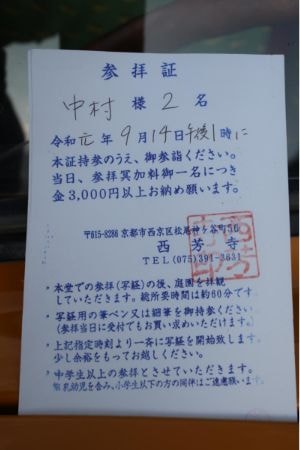 参拝証
中村 様 2 名
令和元年9月14日午後1時に
本証持参のうえ、御参詣ください。
当日、参拝冥加料御一名につき
金3,000円以上お納め願います。
〒615-8286 京都市西京区松尾神ヶ谷町56
西芳寺
TEL(075)391-3631
・本堂での参拝(写経)の後、庭園を拝観
していただきます。総所要時間は約60分です。
・写経用の筆ペン又は細筆を御持参ください
(参拝当日に受付でもお買い求めいただけます。)
・上記指定時刻より一斉に写経を開始致します。
少し余裕をもってお越しください。
・中学生以上の参拝とさせていただきます。
乳幼児を含み、小学生以下の方の同伴はご遠慮願います。